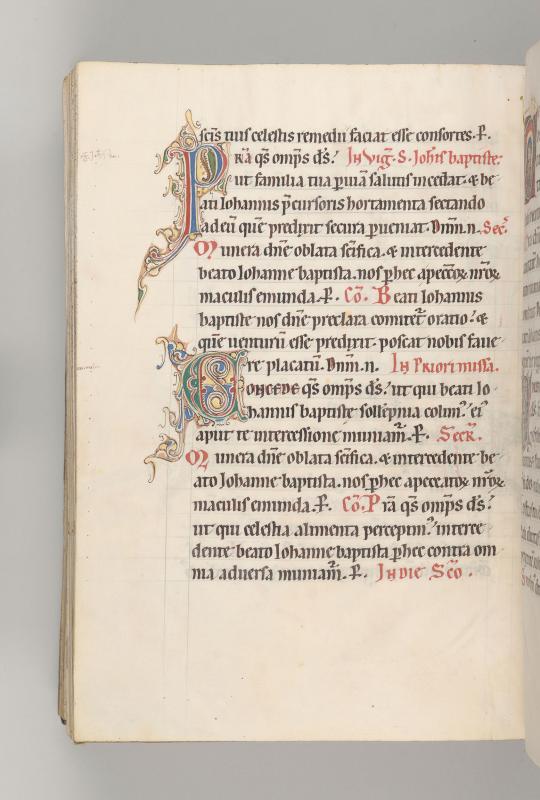 scīs tuis celestis remedii faciat esse consortes. P̄.
P rā qs̄ omp̄s d̄s. In vig̃. S. Joh̃is baptiste.
ut familia tua p̱ uiā salutis incedat. & be
ati Iohannis p̄cursoris hortamenta sectando
ad eū quē predixit secura p̱ueniat. Dn̄m. n. Sec̃.
Munera dn̄e oblata sc̄ifica. & intercedente
beato Iohanne baptista. nos p̱ hec a peccōꝝ nr̄oꝝ
maculis emunda. P̄. Cō. Beati Iohannis
baptiste nos dn̄e preclara comitet̃ oratio. &
quē venturū esse predixit. poscat nobis faue
re placatū. Dn̄m. n. In Priori missa.
Concede qs̄ omp̄s d̄s. ut qui beati Io
hannis baptiste sollēpnia colim᷒. ei᷒
aput te intercessione muniam̃. P̄. Secr̃.
Munera dn̄e oblata sc̄ifica. & intercedente be
ato Iohanne baptista. nos p̱ hec a pecc̄atoꝝ nr̄oꝝ
maculis emunda. P̄. Cō. P rā qs̄ omp̄s d̄s.
ut qui celestia alimenta percepim᷒. interce
dente beato Iohanne baptista p̱ hec contra om
nia aduersa muniam̃. P̄. In die Sc̄o.